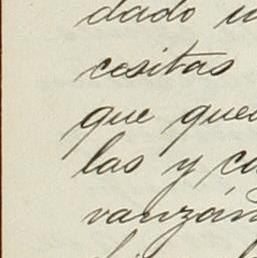 dado u
cesitas
que que
las y ca
vanzán